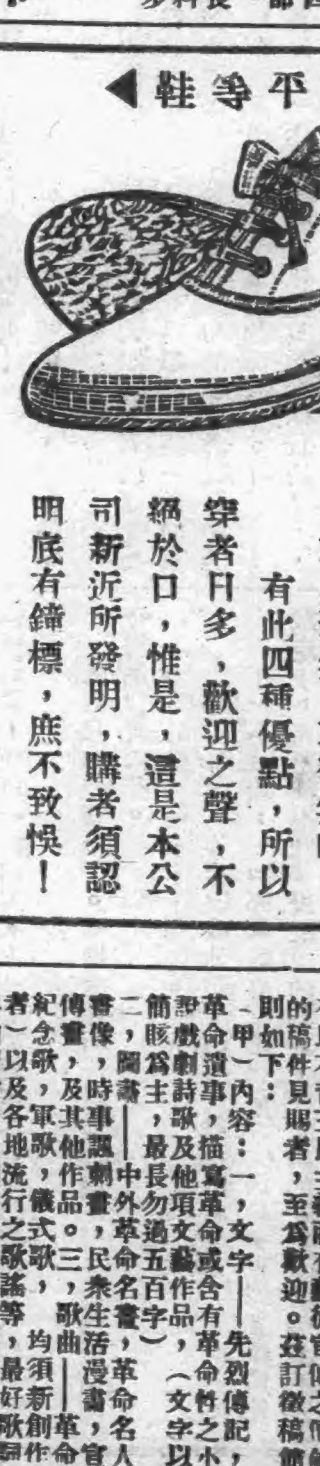 平等鞋
有此四種優點，所以
穿者日多，歡迎之聲，不
絕於口，惟是，這是本公
司新近所發明，購者須認
明底有鐘標，庶不致悞！
的稿件見賜者，至爲歡迎。茲訂徵稿簡
則如下：
（甲）內容：一，文字——先烈傳記，
革命遺事，描寫革命或含有革命性之小
說戲劇詩歌及他項文藝作品，（文字以
簡賅爲主，最長勿過五百字）
二，圖畫——中外革命名畫，革命名人
畫像，時事諷刺畫，民衆生活漫畫，宣
傳畫，及其他作品。三，歌曲——革命
紀念歌，軍歌，儀式歌，均須新創作
者）以及各地流行之歌謠等，最好歌詞